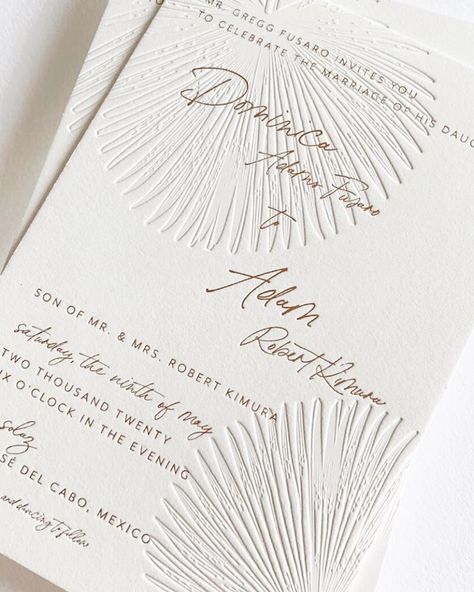 MR. GREGG FUSARO INVITES YOU
TO CELEBRATE THE MARRIAGE OF HIS DAU
Dominica
Adams Fusaro
to
Adam
Robert Kimura
SON OF MR. & MRS. ROBERT KIMURA
saturday, the ninth of may
TWO THOUSAND TWENTY
IX O'CLOCK IN THE EVENING
solaz
SÉ DEL CABO, MEXICO
and dancing to follow